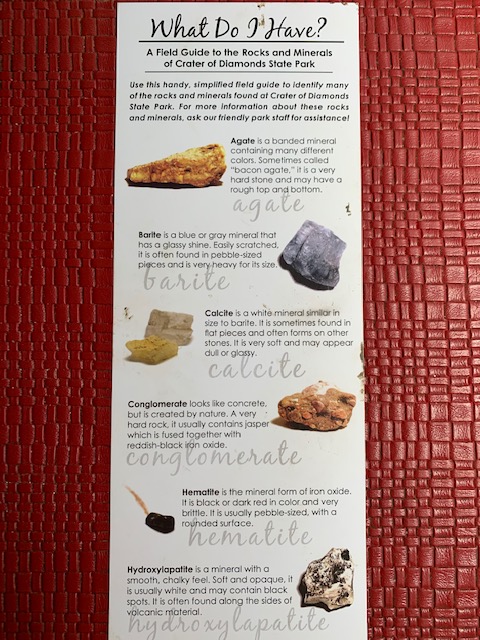 What Do I Have?
A Field Guide to the Rocks and Minerals
of Crater of Diamonds State Park
Use this handy, simplified field guide to identify many
of the rocks and minerals found at Crater of Diamonds
State Park. For more information about these rocks
and minerals, ask our friendly park staff for assistance!
Agate is a banded mineral
containing many different
colors. Sometimes called
"bacon agate," it is a very
hard stone and may have a
rough top and bottom.
agate
Barite is a blue or gray mineral that
has a glassy shine. Easily scratched,
it is often found in pebble-sized
pieces and is very heavy for its size.
barite
Calcite is a white mineral similar in
size to barite. It is sometimes found in
flat pieces and often forms on other
stones. It is very soft and may appear
dull or glassy.
calcite
Conglomerate looks like concrete,
but is created by nature. A very
hard rock, it usually contains jasper
which is fused together with
reddish-black iron oxide.
conglomerate
Hematite is the mineral form of iron oxide.
It is black or dark red in color and very
brittle. It is usually pebble-sized, with a
rounded surface.
hematite
Hydroxylapatite is a mineral with a
smooth, chalky feel. Soft and opaque, it
is usually white and may contain black
spots. It is often found along the sides of
volcanic material.
hydroxylapatite